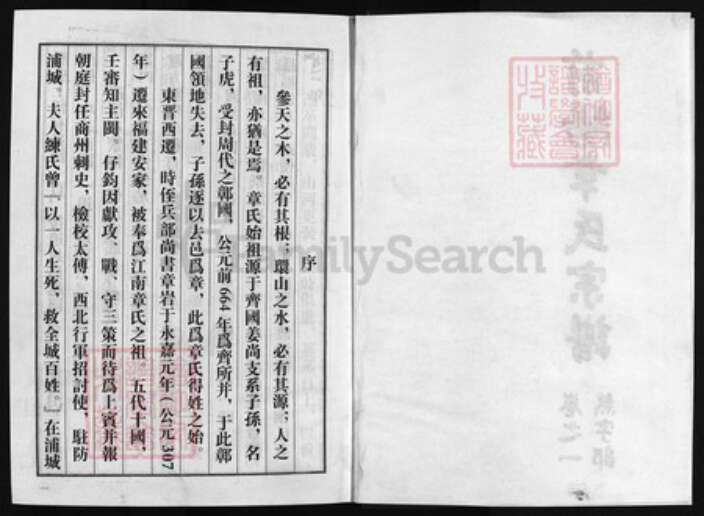 序
參天之木，必有其根；環山之水，必有其源；人之
有祖，亦猶是焉。章氏始祖源于齊國姜尚支系子孫，名
子虎，受封周代之鄣國，公元前664年爲齊所并，于此鄣
國領地失去，子孫逐以去邑爲章，此爲章氏得姓之始。
東晋西遷，時侄兵部尚書章岩于永嘉元年（公元307
年）遷來福建安家，被奉爲江南章氏之祖。五代十國，
王審知主閩。仔鈞因獻攻、戰、守三策而待爲上賓并報
朝庭封任商州刺史，檢校太傅，西北行軍招討使，駐防
浦城。夫人練氏曾『以一人生死，救全城百姓。』在浦城
FamilySearch
章氏宗譜
卷之一